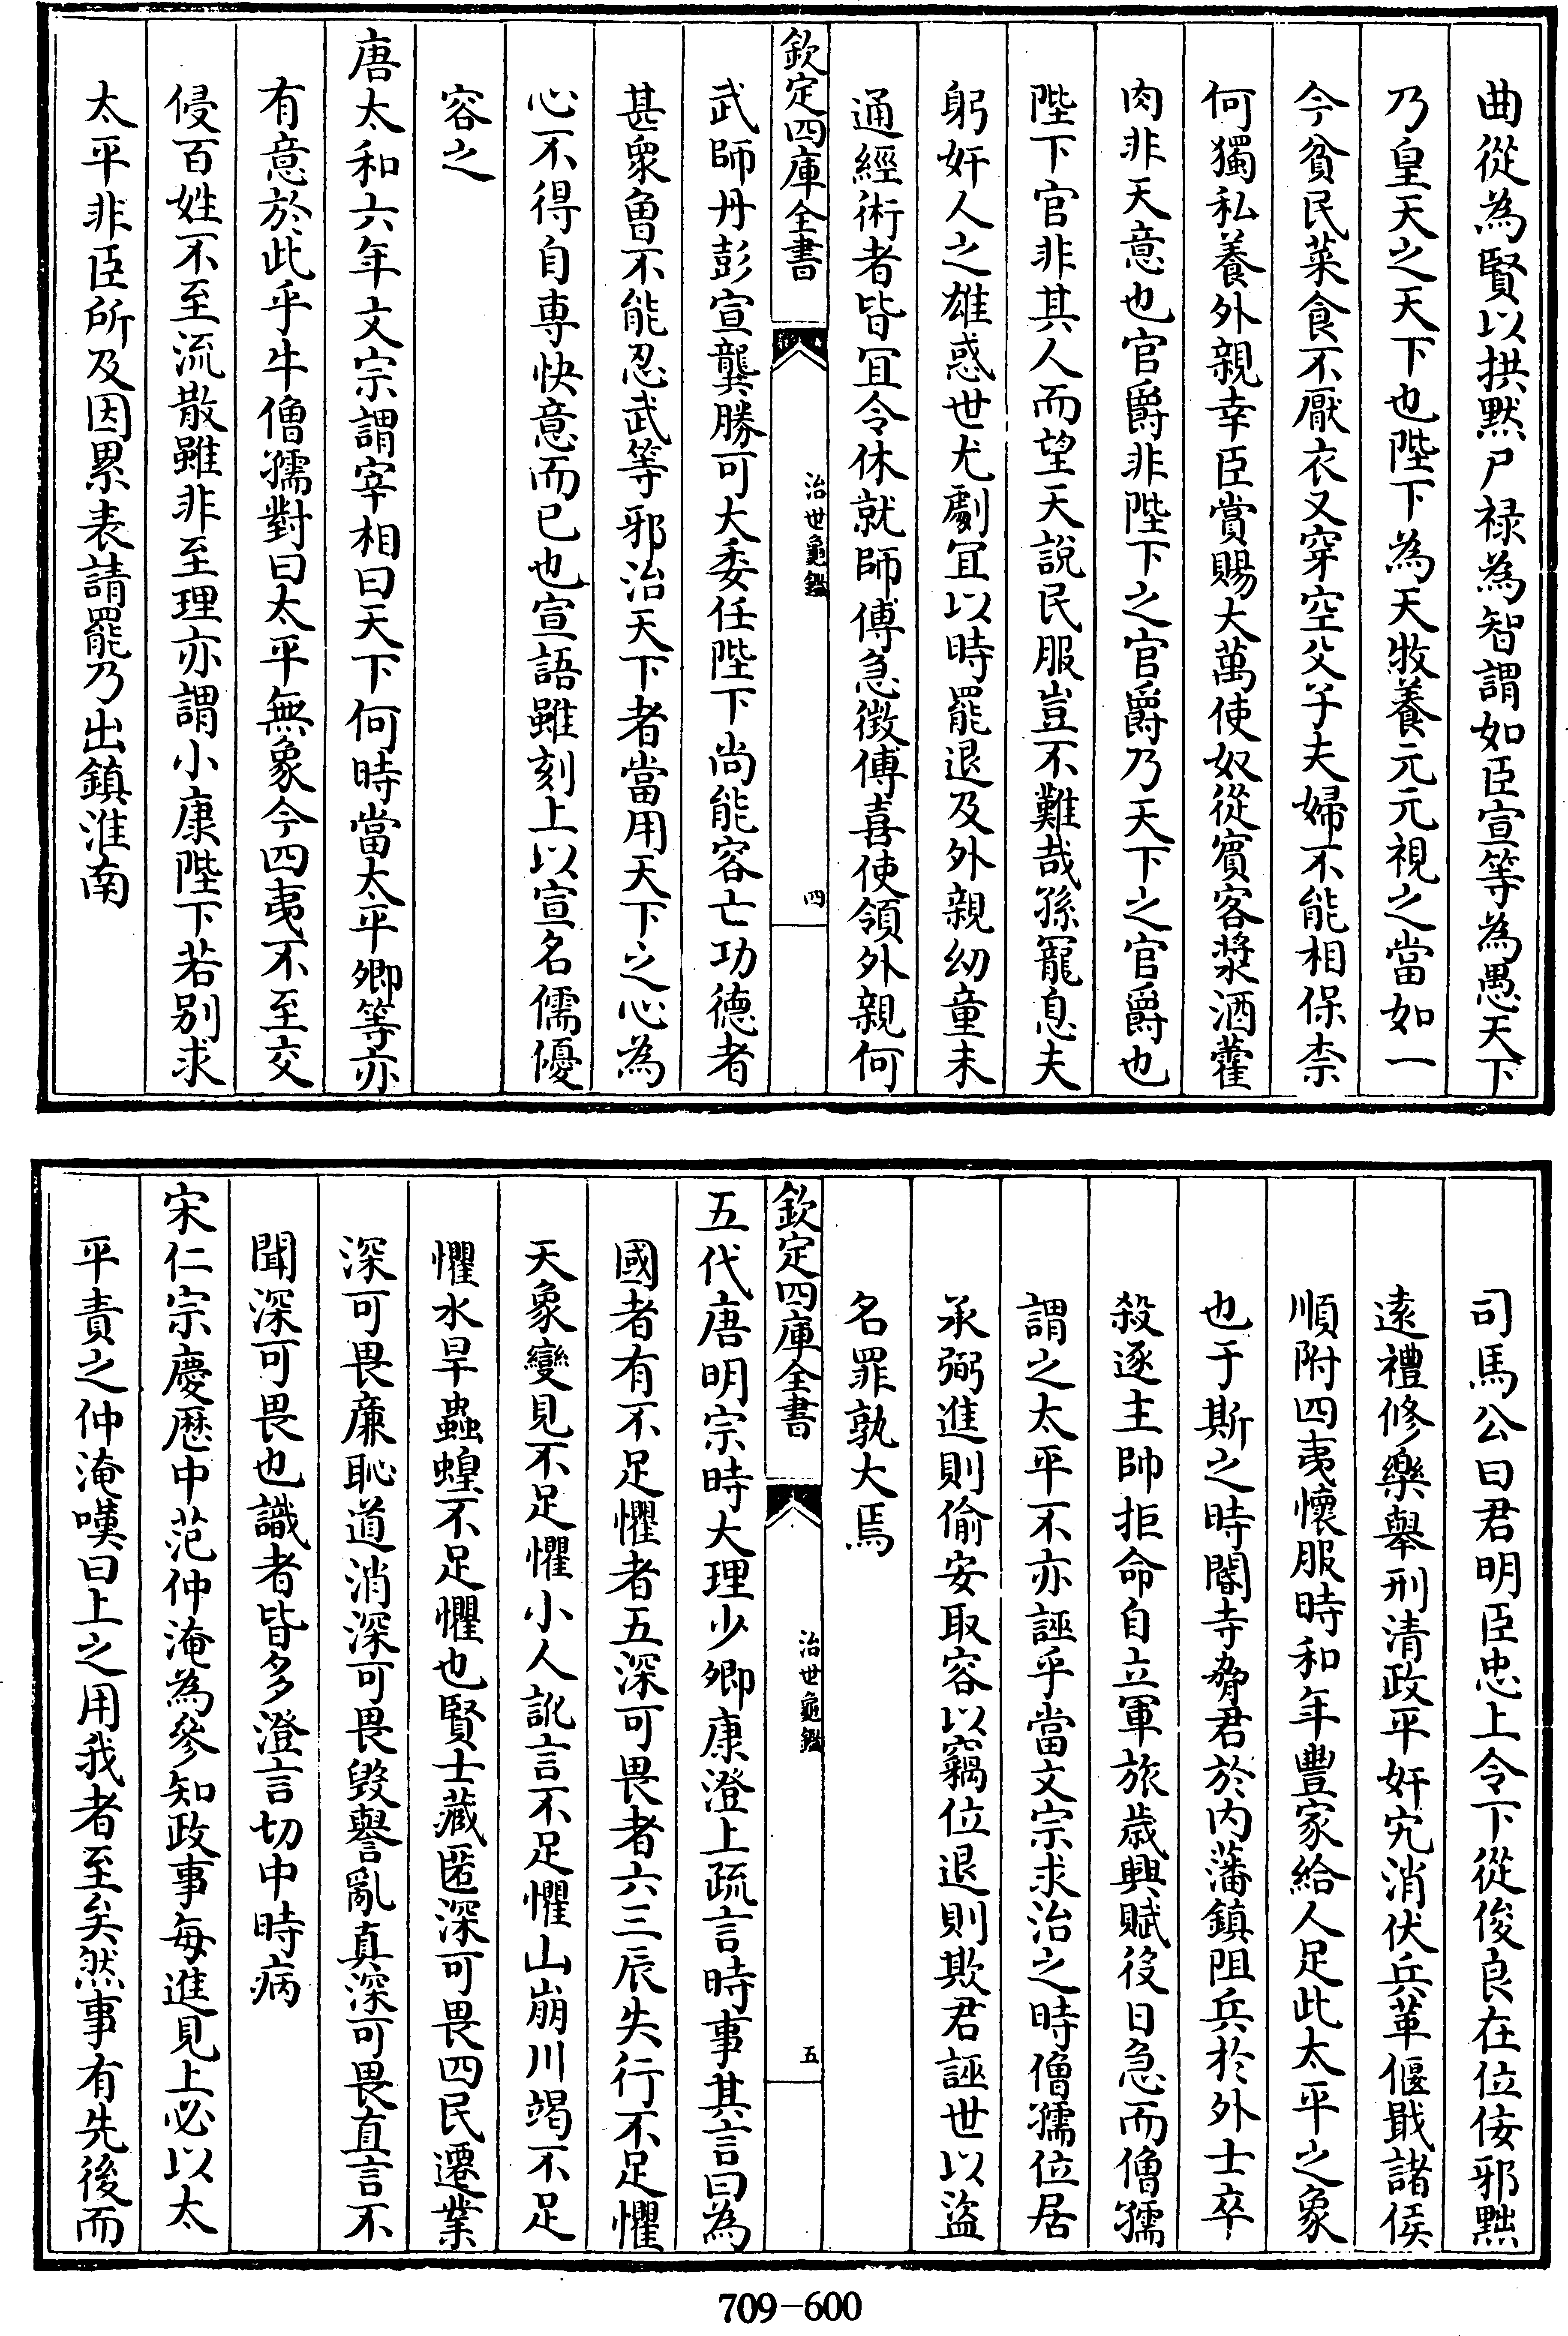 曲從為賢以拱黙尸禄為智謂如臣宣等為愚天下
乃皇天之天下也陛下為天牧養元元視之當如一
今貧民菜食不厭衣又穿空父子夫婦不能相保柰
何獨私養外親幸臣賞賜大萬使奴從賓客漿酒藿
肉非天意也官爵非陛下之官爵乃天下之官爵也
陛下官非其人而望天說民服豈不難哉孫寵息夫
躬奸人之雄惑世尤劇冝以時罷退及外親幼童未
通經術者皆冝令休就師傅急徴傅喜使領外親何
欽定四庫全書
治世龜鑑
四
武師丹彭宣龔勝可大委任陛下尚能容亡功德者
甚衆魯不能忍武等邪治天下者當用天下之心為
心不得自専快意而已也宣語雖刻上以宣名儒優
容之
唐太和六年文宗謂宰相曰天下何時當太平卿等亦
有意於此乎牛僧孺對曰太平無象今四夷不至交
侵百姓不至流散雖非至理亦謂小康陛下若别求
太平非臣所及因累表請罷乃出鎮淮南
司馬公曰君明臣忠上令下從俊良在位佞邪黜
逺禮修樂舉刑清政平奸宄消伏兵革偃戢諸侯
順附四夷懷服時和年豐家給人足此太平之象
也于斯之時閽寺脅君於内藩鎮阻兵於外士卒
殺逐主帥拒命自立軍旅歳興賦役日急而僧孺
謂之太平不亦誣乎當文宗求治之時僧孺位居
承弼進則偷安取容以竊位退則欺君誣世以盜
名罪孰大焉
欽定四庫全書
治世龜鑑
五
五代唐明宗時大理少卿康澄上疏言時事其言曰為
國者有不足懼者五深可畏者六三辰失行不足懼
天象變見不足懼小人訛言不足懼山崩川竭不足
懼水旱蟲蝗不足懼也賢士藏匿深可畏四民遷業
深可畏廉恥道消深可畏毀譽亂真深可畏直言不
聞深可畏也識者皆多澄言切中時病
宋仁宗慶歴中范仲淹為參知政事每進見上必以太
平責之仲淹嘆曰上之用我者至矣然事有先後而
709-600